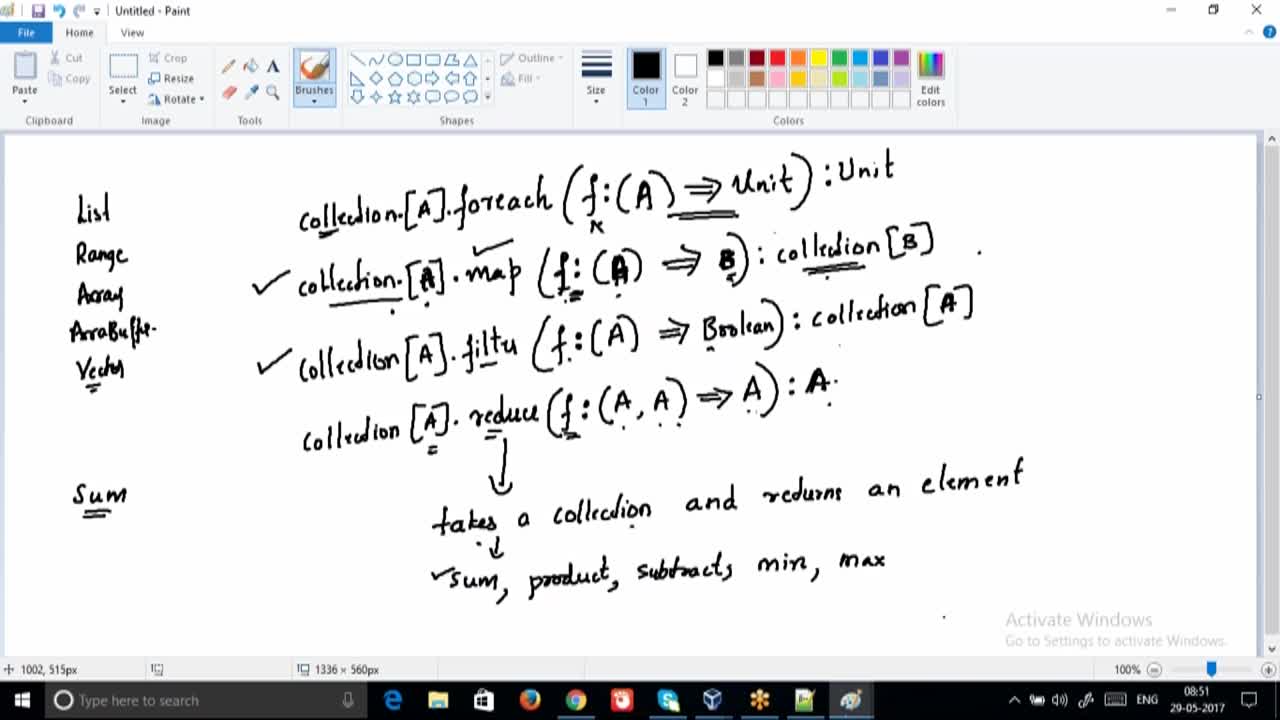 Untitled - Paint
File Home View
Paste Cut Copy Clipboard
Select Crop Resize Rotate Image
Tools
Brushes
Shapes Outline Fill
Size
Color 1 Color 2 Edit colors Colors
List
Range
Array
ArraBuffe.
Vector
Sum
collection.[A].foreach (f:(A) => Unit) : Unit
collection.[A].map (f:(A) => B) : collection[B]
collection[A].filter (f:(A) => Boolean) : collection[A]
collection[A].reduce(f:(A, A) => A) : A.
takes a collection and returns an element
sum, product, subtract, min, max
Activate Windows
Go to Settings to activate Windows.
1002, 515px 1336 × 560px 100%
Type here to search ENG 08:51
29-05-2017